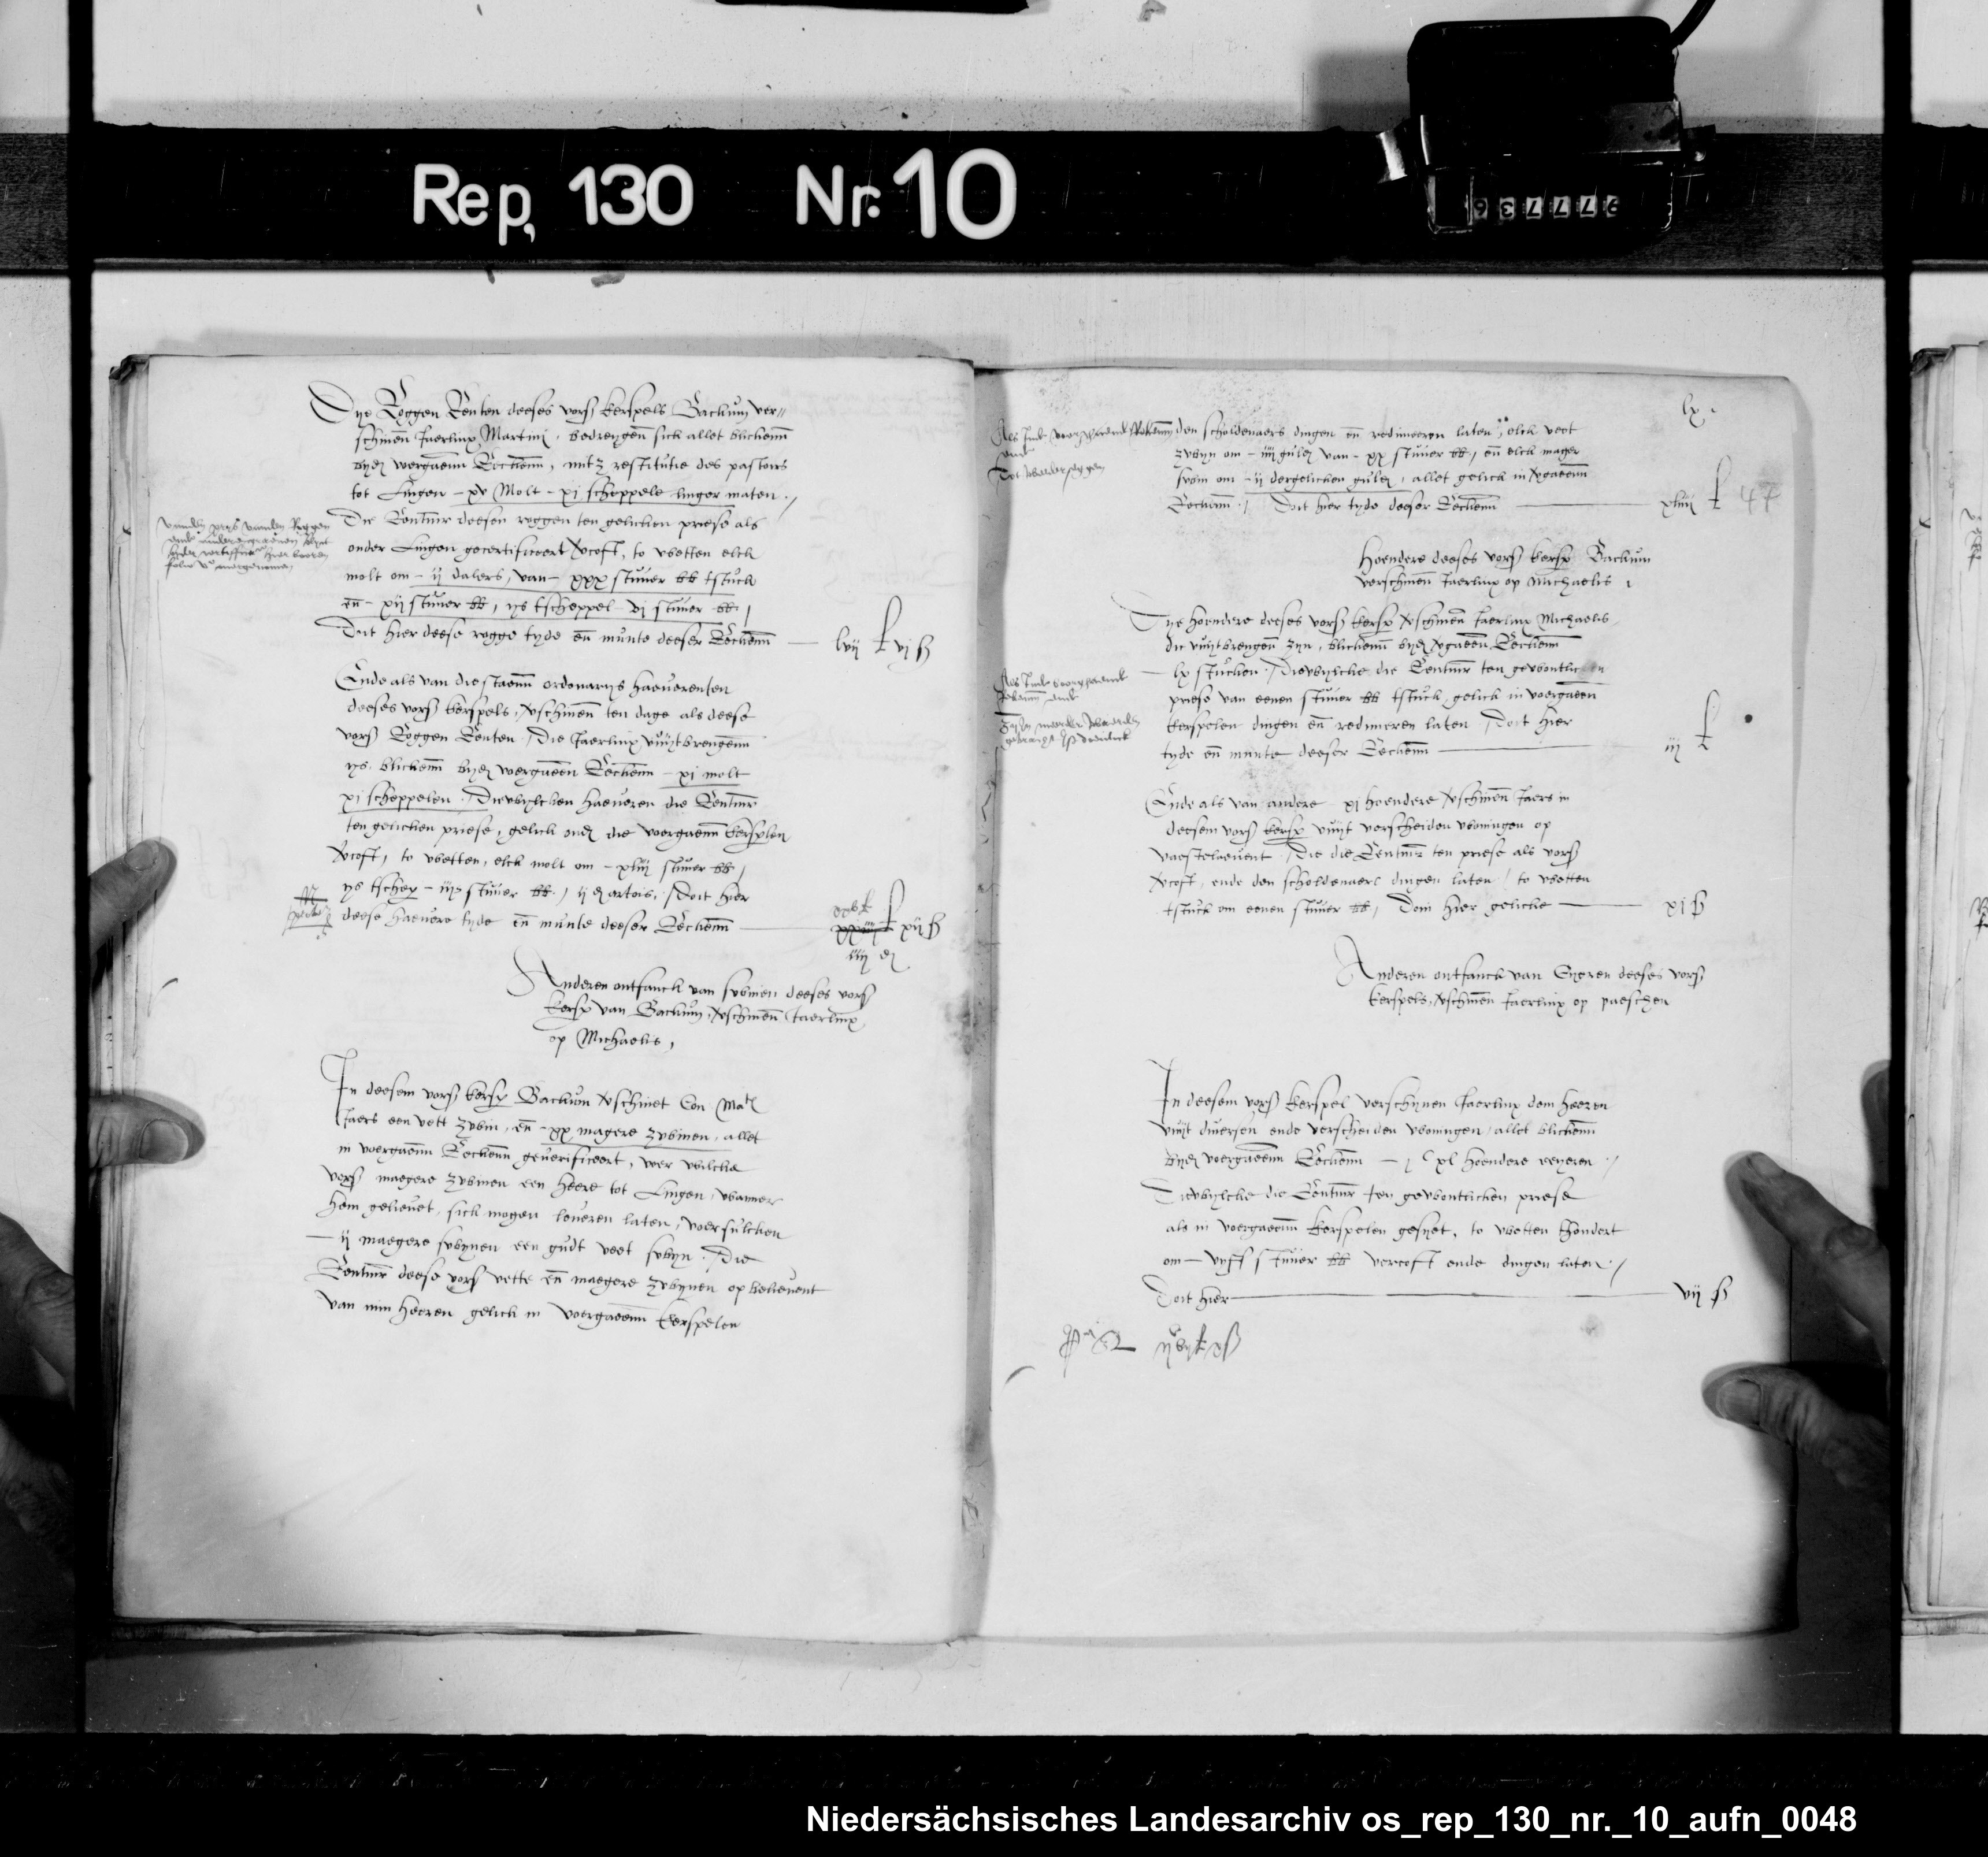 Rep. 130 Nr. 10
Dye Roggen Renten deeses vors kerspels Backum ver
schinen Jaerlinx Martini, bedragen sick allet blickenn
byde voergaenn Reckenn, mitz restitutie des pastoirs
tot Lingen - xv Molt - xj scheppele linger maten.
Die Rentmr deesen roggen ten gelicken priese als
onder Lingen gecertificeert vcoft, to wetten elck
molt om - ij dalers, van - xxx stuver bb tstuck
en - xij stuver bb, ys tscheppel vj stuver bb,
Doit hier deese rogge tyde en munte deeser Reckenn
lvij vj ß
Ende als van die staenn ordenarys haeverenten
deeses vors kerspels, vschinen ten dage als deese
vors Roggen Renten. Die Jaerlinx vuytbrengenn
ys. blickenn byde voergaeen Reckenn - xj molt
xj scheppelen. Diewylcken haeveren die Rentmr
ten gelicken priese, gelick ond die voergaenn kersplen
vcoft, to wetten, elck molt om - xliiij stuver bb,
ys tschep - stuver bb., ij artois. Doit hier
deese haevere tyde en munte deeser Reckenn
xij ß
iiij d
Anderen ontfanck van swinen deeses vors
kersp van Backum, vschinen Jaerlinx
op Michaelis,
In deesem vors kersp Backum vschinet Con. Mat
Jaers een vett zwin, en - xx magere zwinen, allet
in voergaenn Reckenn geverificeert, wer wilcke
vors maegere zwinen een heere tot Lingen, wanner
hem gelievet, sick mogen leveren laten, voer sulcken
- ij maegere swynen een gudt veet swyn. Die
Rentmr deese vors vette en maegere zwynen op believent
van min heeren gelick in voergaeenn kerspelen
lx
den scholdenaers dingen en redimeeren laten, elck veet
zwyn om - iiij gul van - xx stuver bb, en elck mager
swin om - ij dergelicken gul, allet gelick in vgaeenn
Reckenn. Doit hier tyde deeser Reckenn
xliiij 44
Hoendere deeses vors kersp Backum
verschinen Jaerlinx op Michaelis
Dye hoendere deeses vors kersp vschinen Jaerlinx Michaelis
die vuytbrengen zyn, blickenn byde vgaeen Reckenn
- lx stucken. Diewylcke die Rentmr ten gewontlicken
priese van eenen stuver bb tstuck, gelick in voergaeen
kerspelen dingen en redimeren laten. Doit hier
tyde en munte deeser Reckenn
iij
Ende als van andere xj hoendere vschinen Jaers in
deesem vors kersp vuyt verscheiden woningen op
vaestelaevent. Die die Rentmr ten priese als vors
vcoft, ende den scholdenaers dingen laten, to wetten
tstuck om eenen stuver bb, Doin hier gelicke
xj ß
Anderen ontfanck van Eyeren deeses vors
kerspels, vschinen Jaerlinx op paeschen
In deesem vors kerspel verschynen Jaerlinx dem heeren
vuyt diversen ende verscheiden woningen, allet blickenn
byde voergaeenn Reckenn - j c xl hoendere eeyeren.
Diewylcke die Rentmr ten gewontlicken priese
als in voergaeenn kerspelen geseyt, to wetten thondert
om - vyff stuver bb vercoft ende dingen laten.
Doit hier
vij ß
Niedersächsisches Landesarchiv os_rep_130_nr._10_aufn_0048